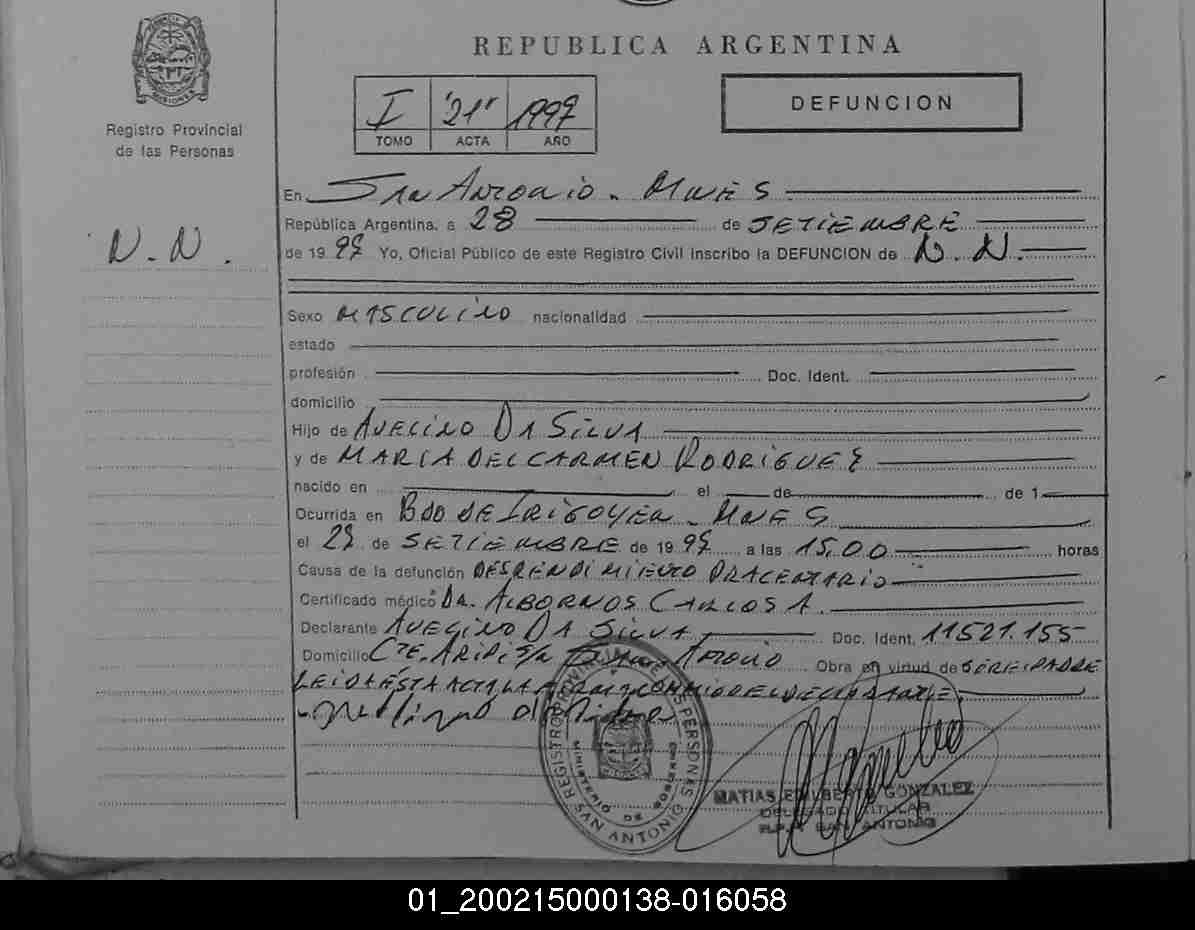 REPUBLICA ARGENTINA
MISIONES
Registro Provincial
de las Personas
I "21" 1997
TOMO ACTA AÑO
DEFUNCION
N.N.
En San Antonio - Mnes
República Argentina, a 28 de SETIEMBRE
de 1997 Yo, Oficial Público de este Registro Civil inscribo la DEFUNCION de N.N.
Sexo MASCULINO nacionalidad
estado
profesión Doc. Ident.
domicilio
Hijo de AVELINO DA SILVA
y de MARIA DEL CARMEN RODRIGUEZ
nacido en el de de 1
Ocurrida en BDO DE IRIGOYEN - MNES
el 27 de SETIEMBRE de 1997 a las 15,00 horas
Causa de la defunción DESPRENDIMIENTO PLACENTARIO
Certificado médico DR. ALBORNOS CARLOS A.
Declarante AVELINO DA SILVA Doc. Ident. 11521.155
Domicilio CTE. ARIPI S/N Antonio Obra en virtud de SER EL PADRE
LEIDA ESTA ACTA LA FIRMA CONMIGO EL DECLARANTE
REGISTRO PROVINCIAL DE LAS PERSONAS
MINISTERIO DE GOBIERNO
SAN ANTONIO
MATIAS EDILBERTO GONZALEZ
DELEGADO TITULAR
R.P.P. SAN ANTONIO
01_200215000138-016058